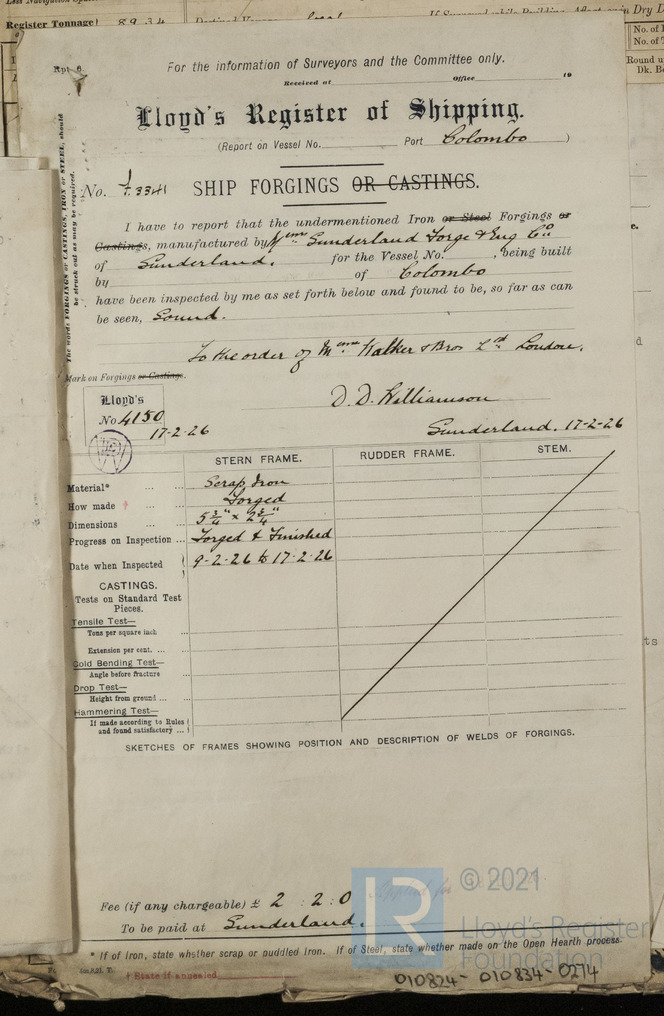 Register Tonnage 8934
Rpt. 6.
For the information of Surveyors and the Committee only.
Received at Office 19
Lloyd's Register of Shipping.
(Report on Vessel No. Port Colombo )
No. 3341 SHIP FORGINGS OR CASTINGS.
The words FORGINGS or CASTINGS, IRON or STEEL, should
be struck out as may be required.
I have to report that the undermentioned Iron or Steel Forgings or
Castings, manufactured by Sunderland Forge & Eng Co
of Sunderland. for the Vessel No. , being built
by of Colombo
have been inspected by me as set forth below and found to be, so far as can
be seen, Sound.
To the order of Walker & Bros Ltd London.
Mark on Forgings or Castings.
Lloyd's
No 4150
17-2-26
D. D. Williamson
Sunderland. 17-2-26
STERN FRAME. RUDDER FRAME. STEM.
Material* ... ... Scrap Iron
How made † ... ... Forged
Dimensions ... ... 5 3/4" x 2 3/4"
Progress on Inspection ... Forged & Finished
Date when Inspected 9-2-26 to 17-2-26
CASTINGS.
Tests on Standard Test
Pieces.
Tensile Test—
Tons per square inch ...
Extension per cent. ... ...
Cold Bending Test—
Angle before fracture ...
Drop Test—
Height from ground ... ...
Hammering Test—
If made according to Rules
and found satisfactory ...
SKETCHES OF FRAMES SHOWING POSITION AND DESCRIPTION OF WELDS OF FORGINGS.
Fee (if any chargeable) £ 2 : 2 : 0
To be paid at Sunderland.
* If of Iron, state whether scrap or puddled Iron. If of Steel, state whether made on the Open Hearth process.
† State if annealed
010824-010834-0274
LR
© 2021
Lloyd's Register
Foundation